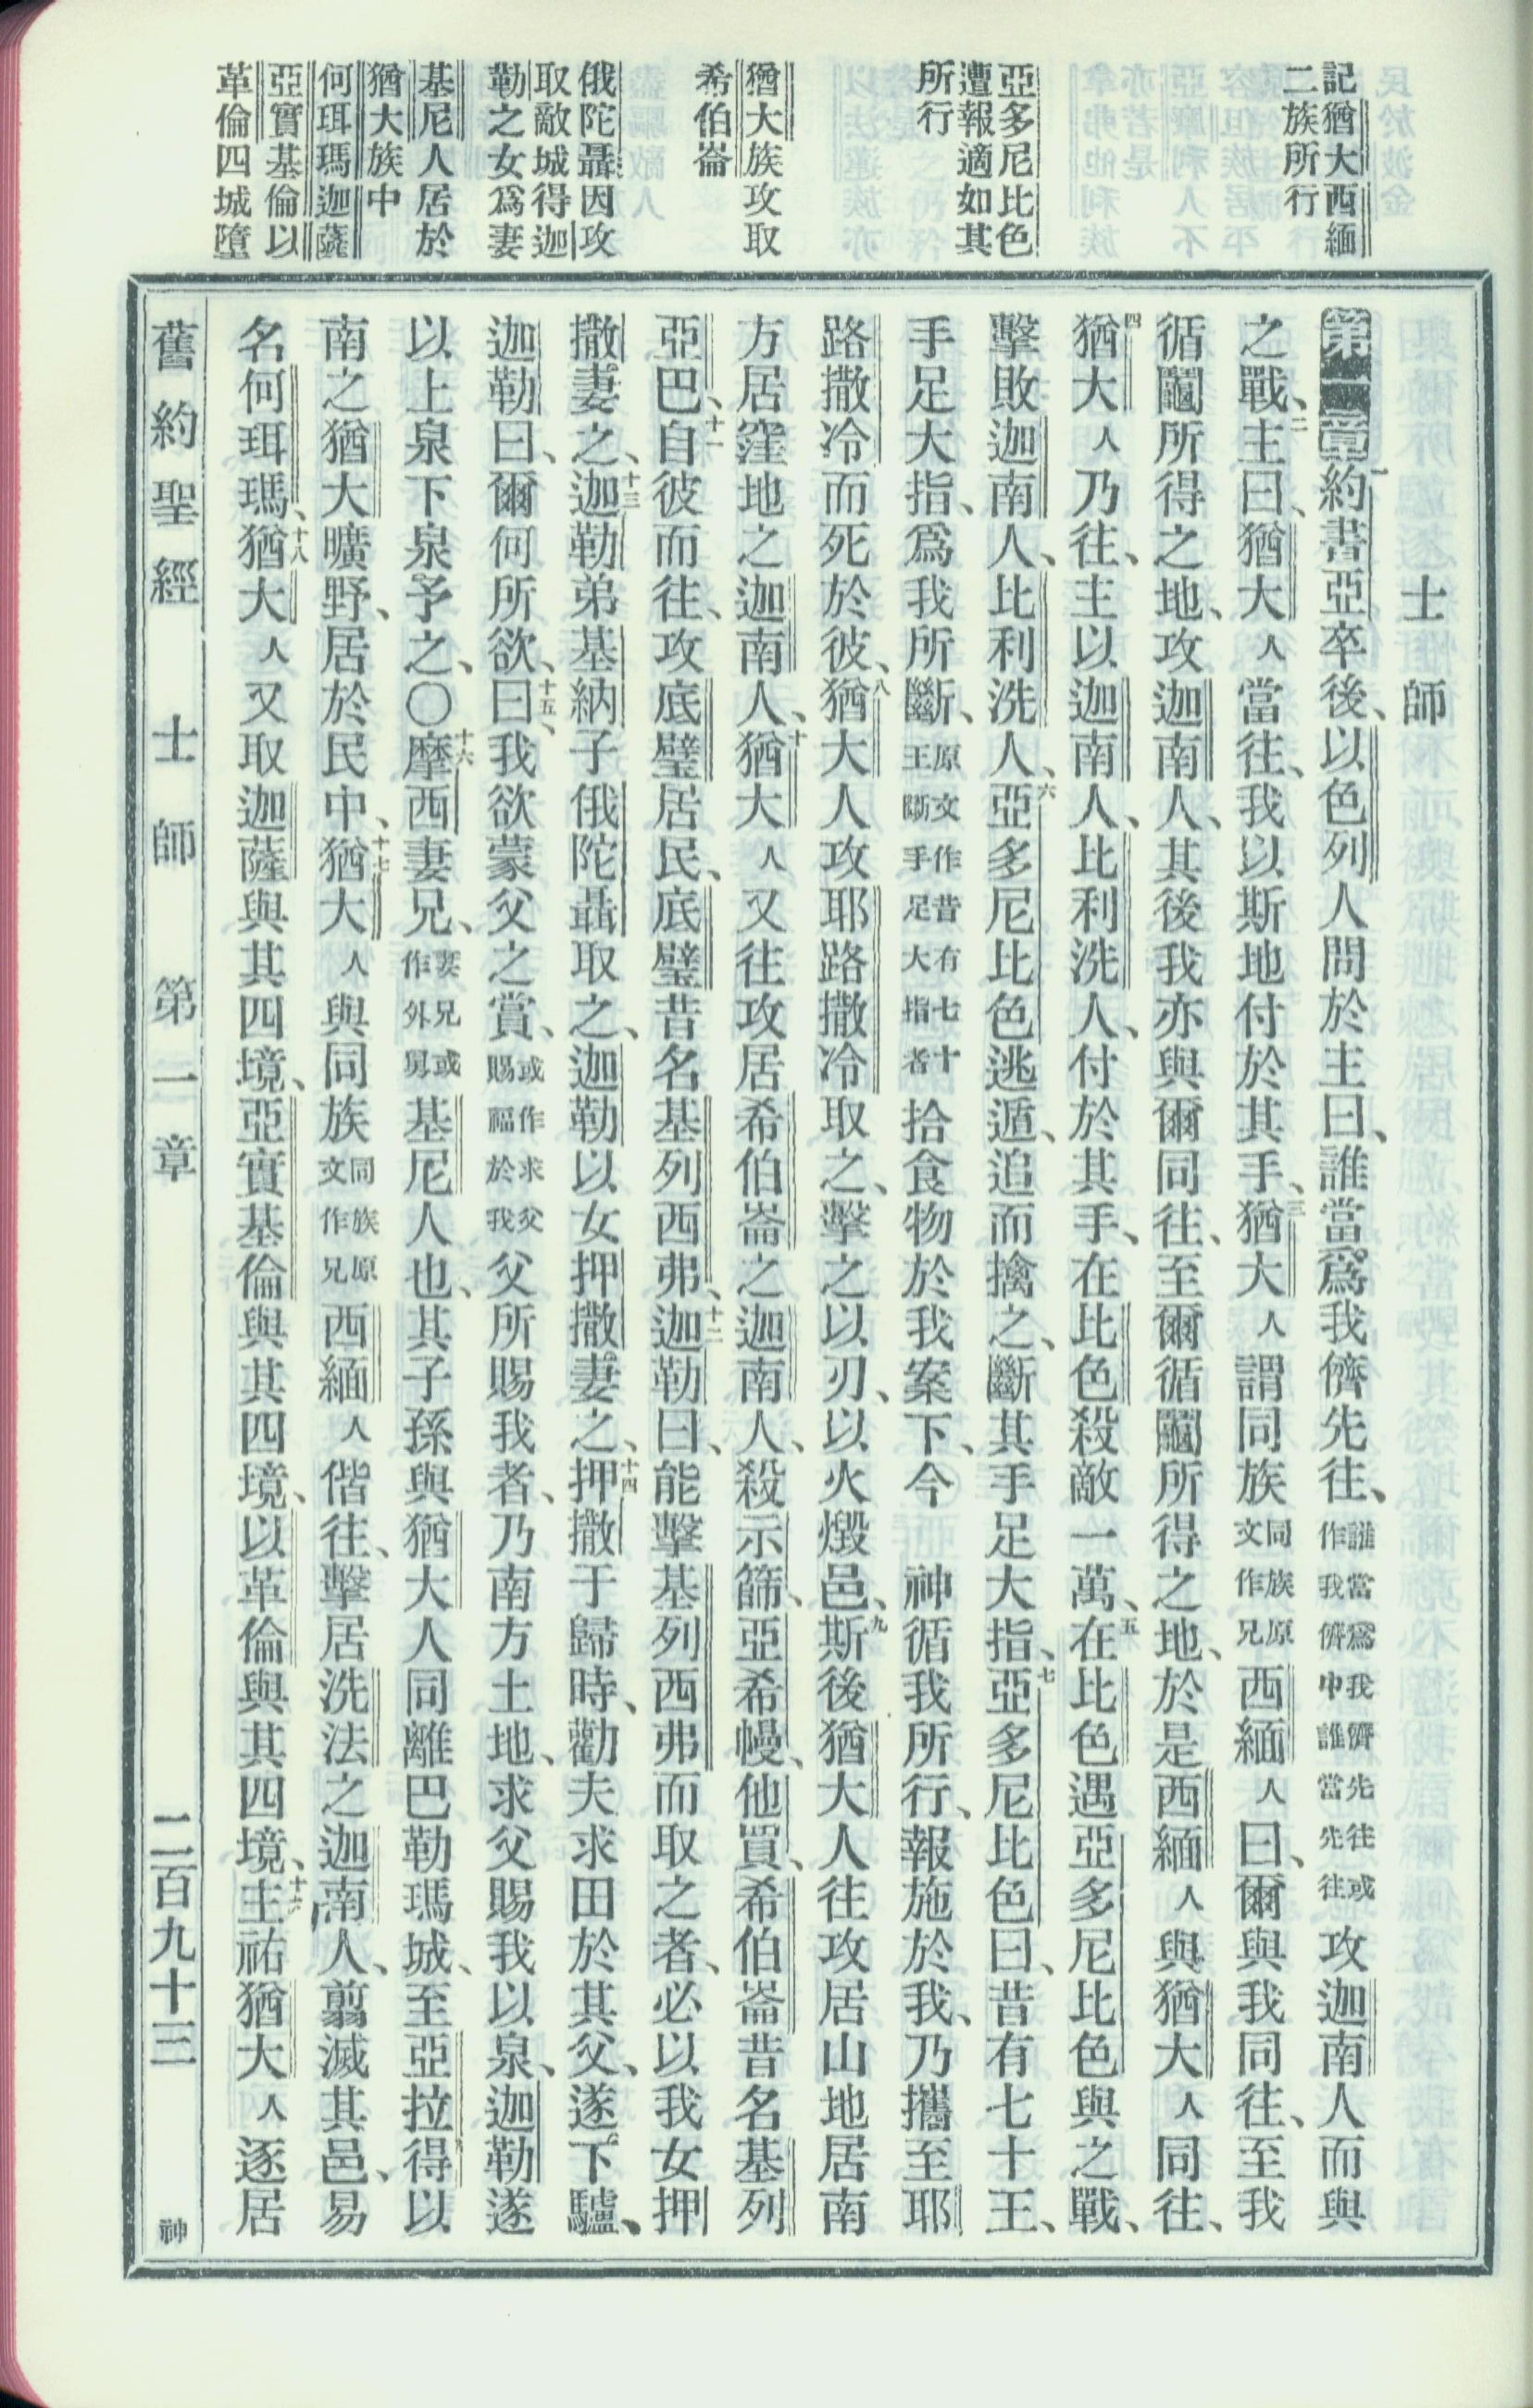 記猶大西緬
二族所行
亞多尼比色
遭報適如其
所行
猶大族攻取
希伯崙
俄陀聶因攻
取敵城得迦
勒之女爲妻
基尼人居於
猶大族中
何珥瑪迦薩
亞實基倫以
革倫四城墮
士師
第一章一約書亞卒後、以色列人問於主曰、誰當爲我儕先往、誰當爲我儕先往或作我儕中誰當先往攻迦南人而與
之戰、二主曰、猶大人當往、我以斯地付於其手、三猶大人謂同族同族原文作兄西緬人曰、爾與我同往、至我
循鬮所得之地、攻迦南人、其後我亦與爾同往、至爾循鬮所得之地、於是西緬人與猶大人同往、
四猶大人乃往、主以迦南人、比利洗人、付於其手、在比色殺敵一萬、五在比色遇亞多尼比色與之戰、
擊敗迦南人、比利洗人、六亞多尼比色逃遁、追而擒之、斷其手足大指、七亞多尼比色曰、昔有七十王、
手足大指、爲我所斷、原文作昔有七十王斷手足大指者拾食物於我案下、今 神循我所行、報施於我、乃攜至耶
路撒冷而死於彼、八猶大人攻耶路撒冷取之、擊之以刃、以火燬邑、九斯後猶大人往攻居山地居南
方居窪地之迦南人、十猶大人又往攻居希伯崙之迦南人、殺示篩、亞希幔、他買、希伯崙昔名基列
亞巴、十一自彼而往、攻底璧居民、底璧昔名基列西弗、十二迦勒曰、能擊基列西弗而取之者、必以我女押
撒妻之、十三迦勒弟基納子俄陀聶取之、迦勒以女押撒妻之、十四押撒于歸時、勸夫求田於其父、遂下驢、
迦勒曰、爾何所欲、十五曰、我欲蒙父之賞、或作求父賜福於我父所賜我者、乃南方土地、求父賜我以泉、迦勒遂
以上泉下泉予之、〇十六摩西妻兄、妻兄或作外舅基尼人也、其子孫與猶大人同離巴勒瑪城、至亞拉得以
南之猶大曠野、居於民中、十七猶大人與同族同族原文作兄西緬人偕往、擊居洗法之迦南人、翦滅其邑、易
名何珥瑪、十八猶大人又取迦薩與其四境、亞實基倫與其四境、以革倫與其四境、主祐猶大人逐居
舊約聖經 士師 第一章 二百九十三 神